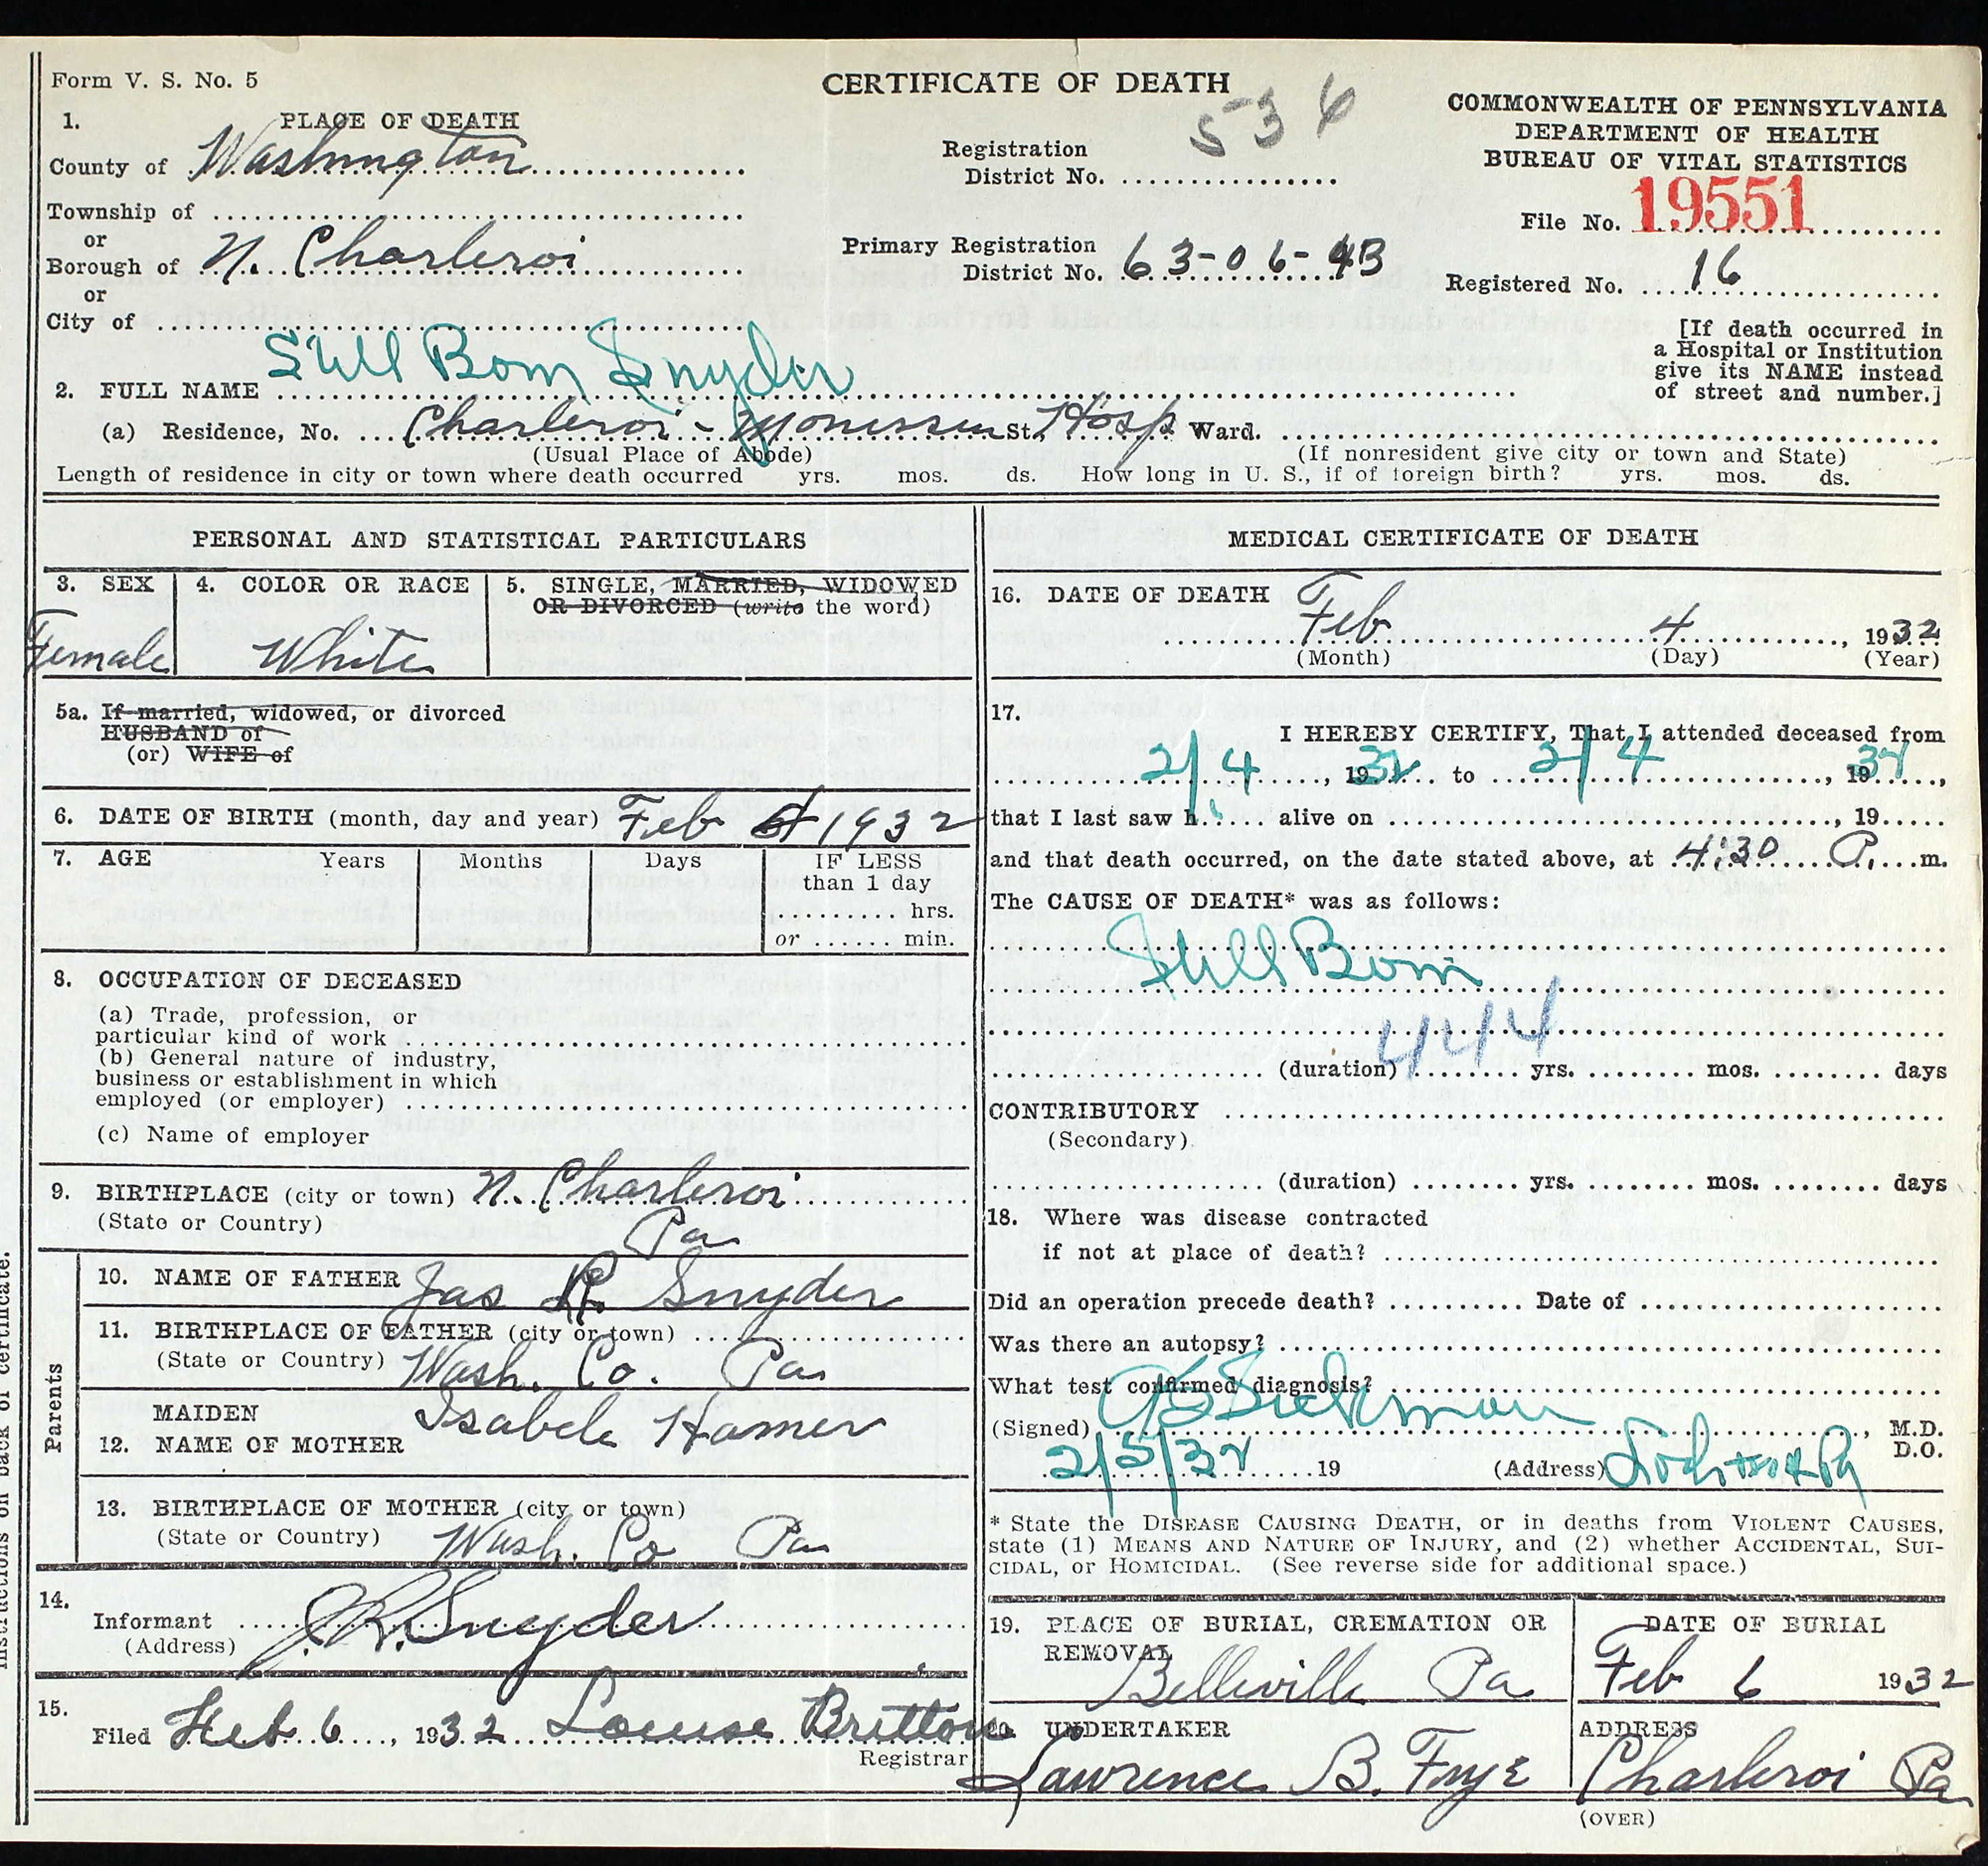 Form V. S. No. 5
CERTIFICATE OF DEATH
536
COMMONWEALTH OF PENNSYLVANIA
DEPARTMENT OF HEALTH
BUREAU OF VITAL STATISTICS
1. PLACE OF DEATH
County of Washington
Registration
District No.
File No. 19551
Township of
or
Borough of N. Charleroi
Primary Registration
District No. 63-06-43
Registered No. 16
or
City of
[If death occurred in
a Hospital or Institution
give its NAME instead
of street and number.]
2. FULL NAME Still Born Snyder
(a) Residence, No. Charleroi - Monessen St. Hosp Ward.
(Usual Place of Abode) (If nonresident give city or town and State)
Length of residence in city or town where death occurred yrs. mos. ds. How long in U. S., if of foreign birth? yrs. mos. ds.
PERSONAL AND STATISTICAL PARTICULARS
3. SEX 4. COLOR OR RACE 5. SINGLE, MARRIED, WIDOWED
OR DIVORCED (write the word)
Female White
5a. If married, widowed, or divorced
HUSBAND of
(or) WIFE of
6. DATE OF BIRTH (month, day and year) Feb 4 1932
7. AGE Years Months Days IF LESS
than 1 day
hrs.
or min.
8. OCCUPATION OF DECEASED
(a) Trade, profession, or
particular kind of work
(b) General nature of industry,
business or establishment in which
employed (or employer)
(c) Name of employer
9. BIRTHPLACE (city or town) N. Charleroi
(State or Country) Pa
Parents
10. NAME OF FATHER Jas R. Snyder
11. BIRTHPLACE OF FATHER (city or town)
(State or Country) Wash. Co. Pa
MAIDEN
12. NAME OF MOTHER Isabele Hamer
13. BIRTHPLACE OF MOTHER (city or town)
(State or Country) Wash. Co Pa
14.
Informant J.R. Snyder
(Address)
15.
Filed Feb. 6, 1932 Louise Britton
Registrar
MEDICAL CERTIFICATE OF DEATH
16. DATE OF DEATH
Feb 4, 1932
(Month) (Day) (Year)
17.
I HEREBY CERTIFY, That I attended deceased from
2/4, 1932 to 2/4, 1932,
that I last saw h alive on , 19
and that death occurred, on the date stated above, at 4:30 P. m.
The CAUSE OF DEATH* was as follows:
Still Born
444
(duration) yrs. mos. days
CONTRIBUTORY
(Secondary)
(duration) yrs. mos. days
18. Where was disease contracted
if not at place of death?
Did an operation precede death? Date of
Was there an autopsy?
What test confirmed diagnosis?
(Signed) Sickman, M.D.
D.O.
2/5/32 19 (Address) Pa
* State the DISEASE CAUSING DEATH, or in deaths from VIOLENT CAUSES,
state (1) MEANS AND NATURE OF INJURY, and (2) whether ACCIDENTAL, SUI-
CIDAL, or HOMICIDAL. (See reverse side for additional space.)
19. PLACE OF BURIAL, CREMATION OR
REMOVAL
Belleville Pa
DATE OF BURIAL
Feb 6 1932
20. UNDERTAKER
Lawrence B. Frye
ADDRESS
Charleroi Pa
(OVER)
instructions on back of certificate.